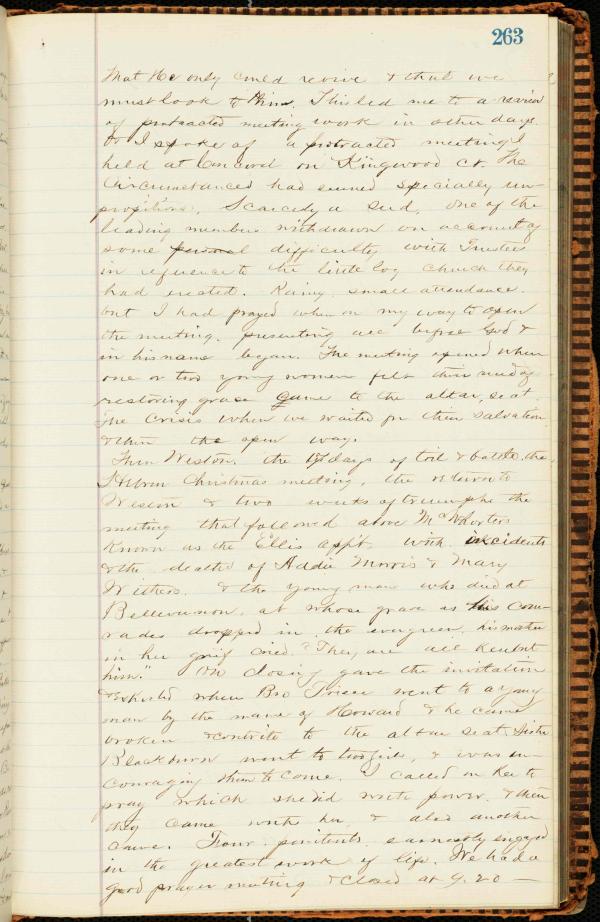 263
that He only could revive & that we
must look to Him. This led me to a review
of protracted meeting work in other days.
So I spoke of a protracted meeting I
held at Concord on Kingwood ct. The
Circumstances had seemed specially un-
propitious. Scarcely a seed, one of the
leading members withdrawn on account of
some personal difficulty with Trustees
in reference to the little log church they
had erected. Rainy, small attendance.
but I had prayed when on my way to open
the meeting, presenting all before God &
in his name began. The meeting opened when
one or two young women felt their need of
restoring grace came to the altar, seat.
The Crisis when we waited for their salvation
& then the open way.
Then Weston. the 17 days of toil & battle, the
Christmas meeting, the return to
Weston & two weeks of triumphs the
meeting that followed above McWhorters
Known as the Ellis appt, with incidents
& the deaths of Addie Morris & Mary
Withers. & the young man who died at
Bellevernon, at whose grave as his com-
rades dropped in the evergreen, his mother
in her grief cried "They are all here but
him." On closing gave the invitation
& exhorted when Bro Price went to a young
man by the name of Howard & he came
broken & contrite to the altar seat. Sister
Blackburn went to two girls, & was in-
couraging them to come. I called on her to
pray which she did with power. & then
they came with her, & also another
came. Four penitents earnestly engaged
in the greatest work of life. We had a
good prayer meeting & closed at 9.20 —